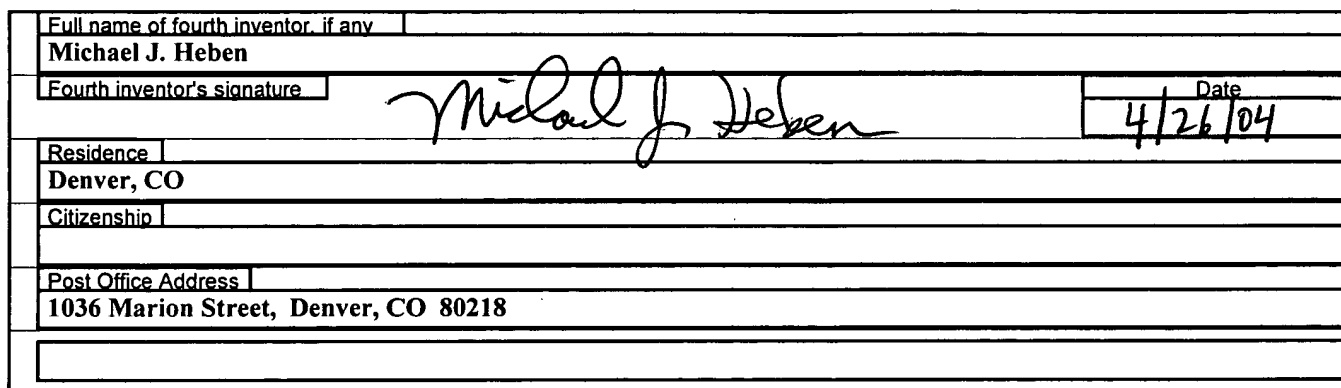 Full name of fourth inventor, if any
Michael J. Heben
Fourth inventor's signature
Michael J. Heben
Date
4/26/04
Residence
Denver, CO
Citizenship
Post Office Address
1036 Marion Street, Denver, CO 80218